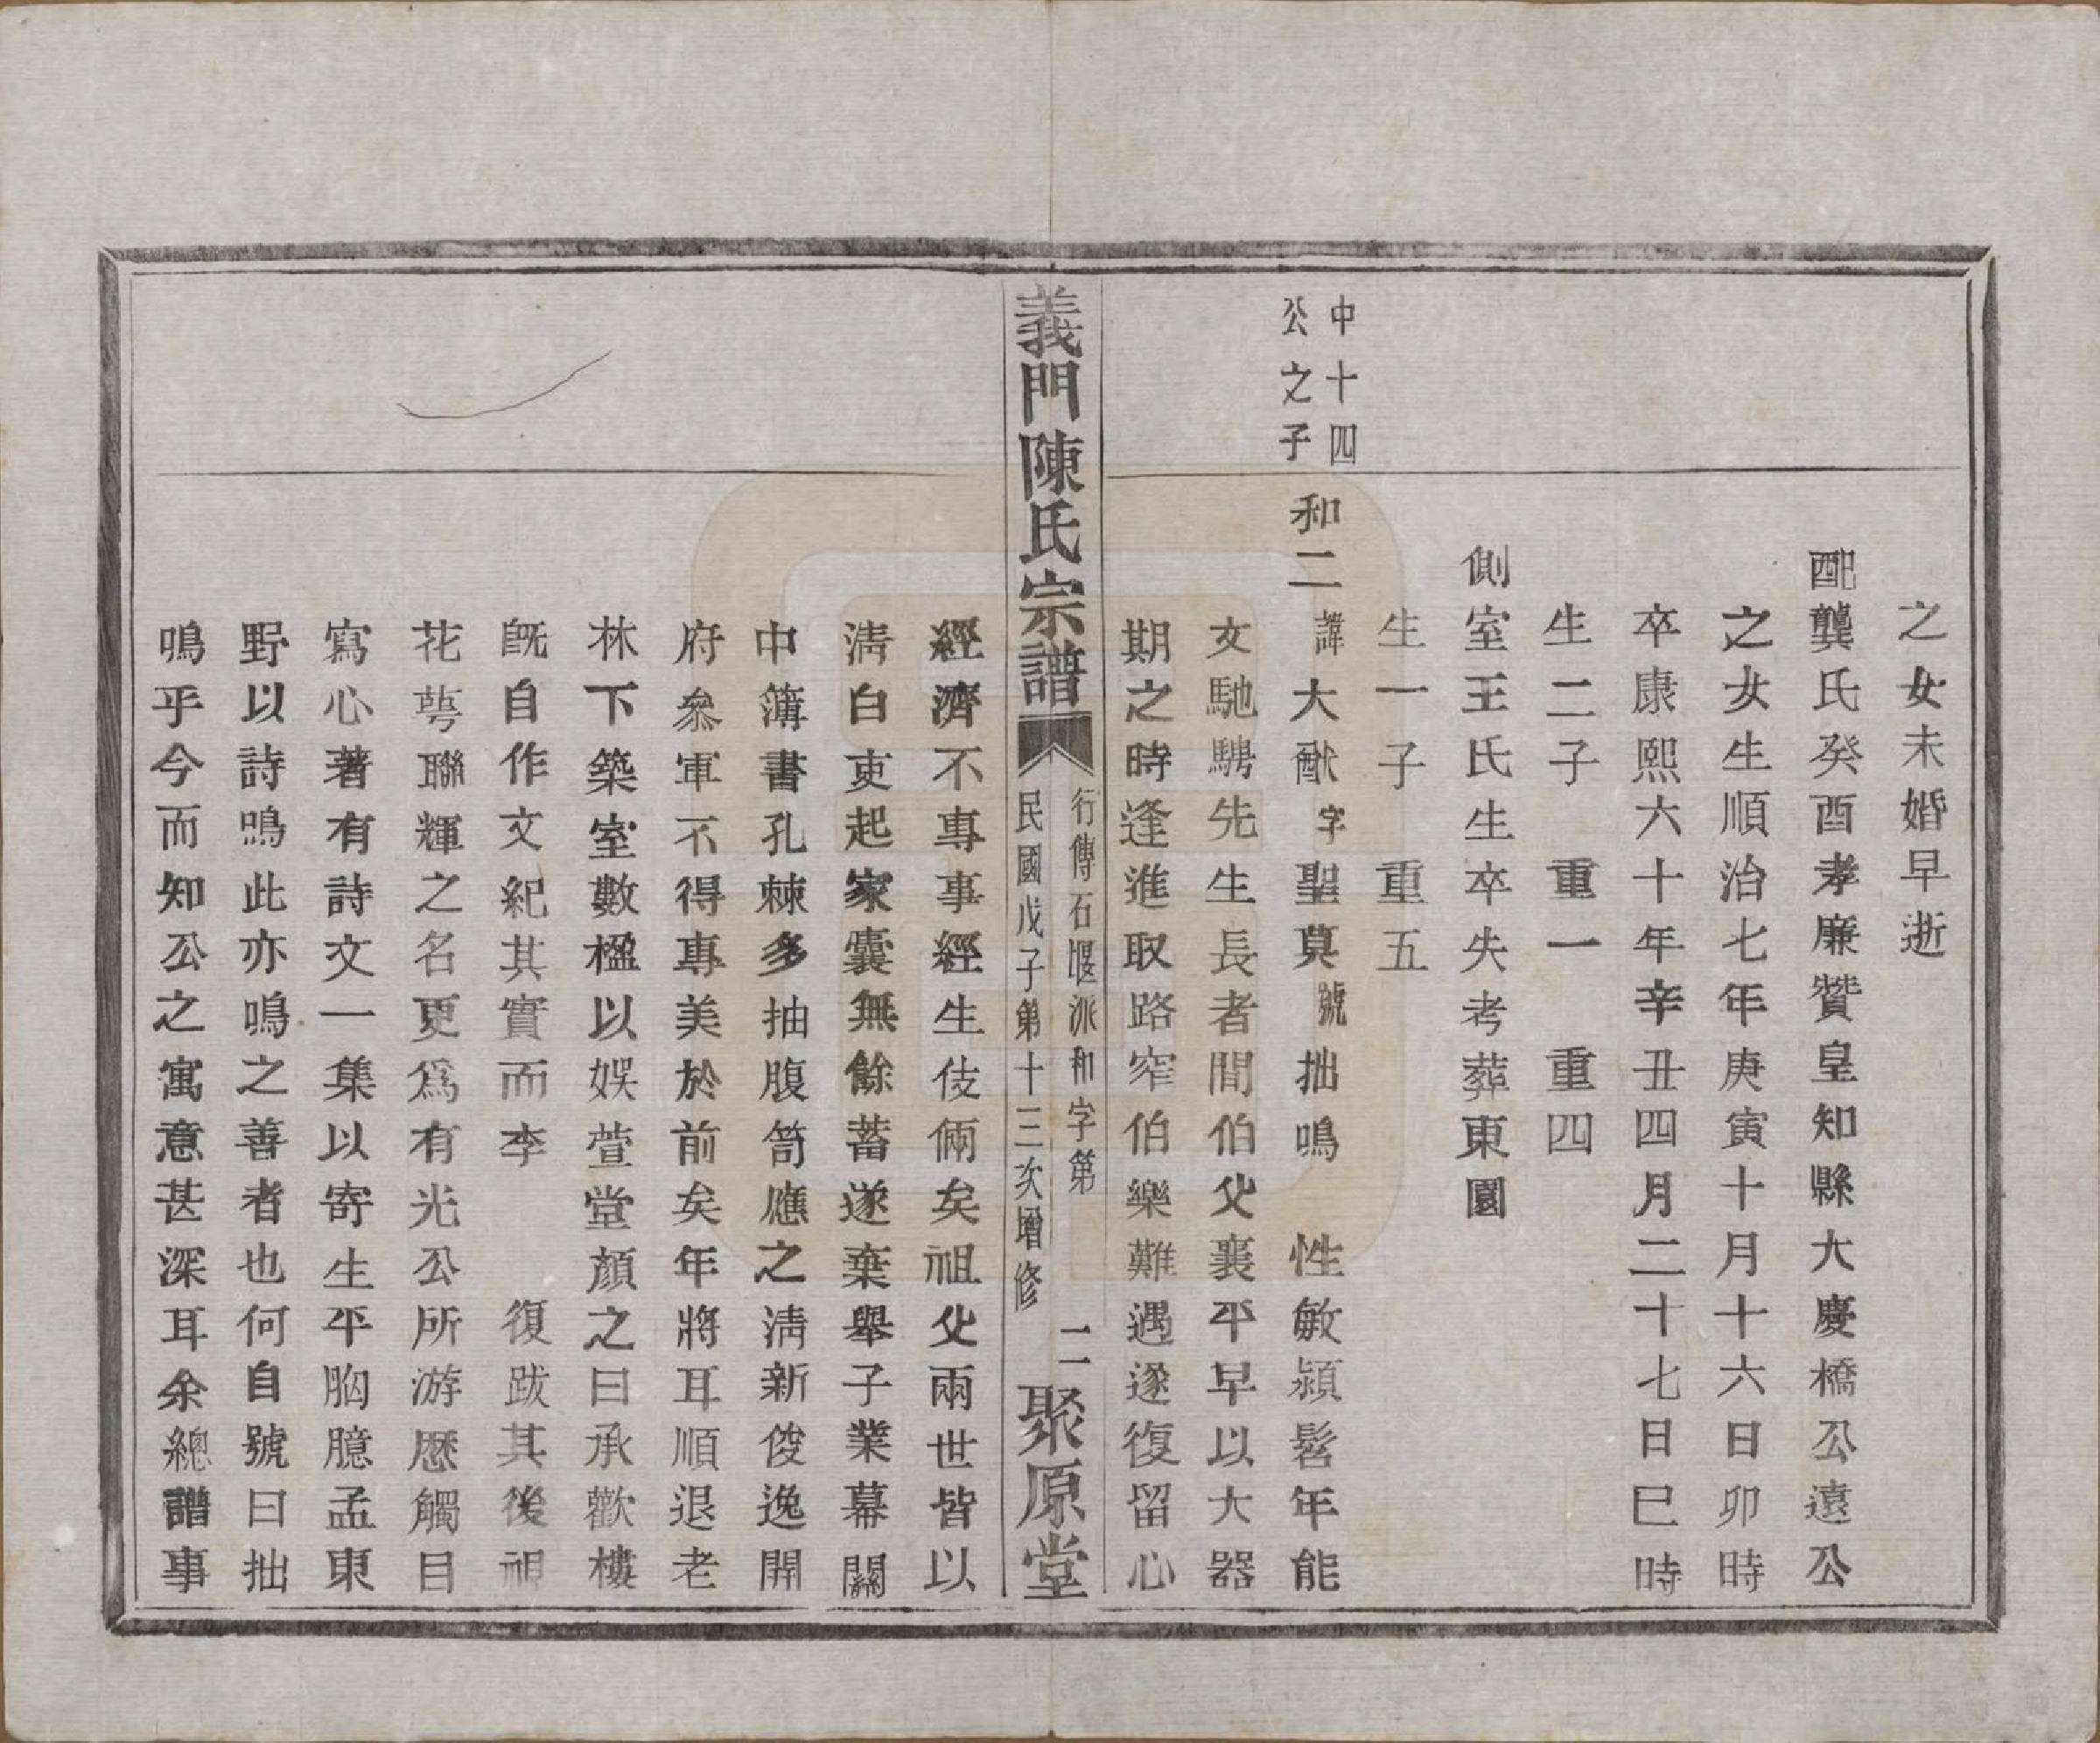 之女未婚早逝
配龔氏癸酉孝廉贊皇知縣大慶橋公遠公
之女生順治七年庚寅十月十六日卯時
卒康熙六十年辛丑四月二十七日巳時
生二子　重一　重四
側室王氏生卒失考葬東園
生一子　重五
中十四
公之子
和二諱大猷字聖莫號拙鳴　性敏潁髫年能
文馳騁先生長者間伯父襄平早以大器
期之時逢進取路窄伯樂難遇遂復留心
義門陳氏宗譜
行傳石堰派和字第
民國戊子第十三次增修
二
聚原堂
經濟不專事經生伎倆矣祖父兩世皆以
淸白吏起家囊無餘蓄遂棄舉子業幕關
中簿書孔棘多抽腹笥應之淸新俊逸開
府叅軍不得專美於前矣年將耳順退老
林下築室數楹以娛萱堂顏之曰承歡樓
旣自作文紀其實而李　　復跋其後視
花萼聯輝之名更爲有光公所游歷觸目
寫心著有詩文一集以寄生平胸臆孟東
野以詩鳴此亦鳴之善者也何自號曰拙
鳴乎今而知公之寓意甚深耳余總譜事